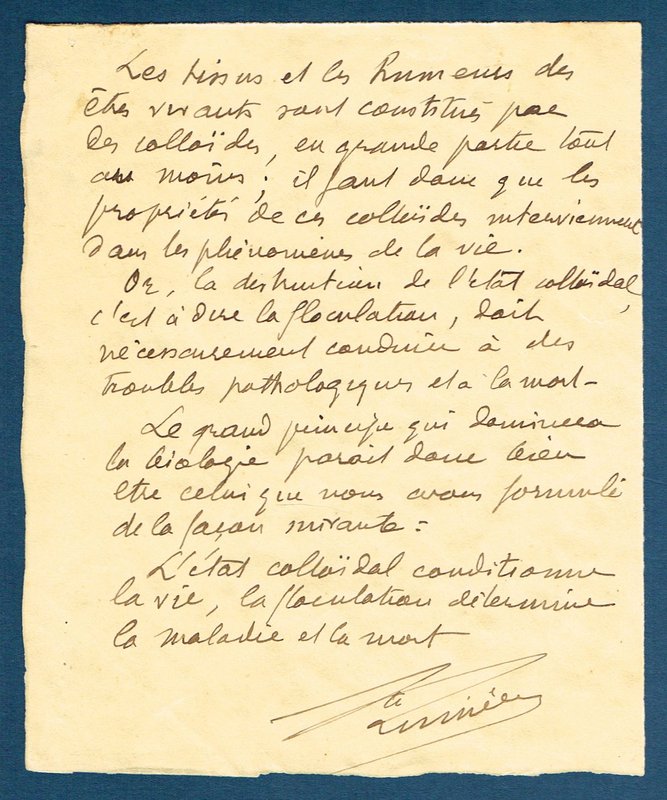 Les tissus et les humeurs des
êtres vivants sont constitués par
des colloïdes, en grande partie tout
au moins ; il faut donc que les
propriétés de ces colloïdes interviennent
dans les phénomènes de la vie.
Or, la destruction de l'état colloïdal,
c'est à dire la floculation, doit
nécessairement conduire à des
troubles pathologiques et à la mort -
Le grand principe qui dominera
la biologie parait donc bien
etre celui que nous avons formulé
de la façon suivante :
L'état colloïdal conditionne
la vie, la floculation détermine
la maladie et la mort
Lumière